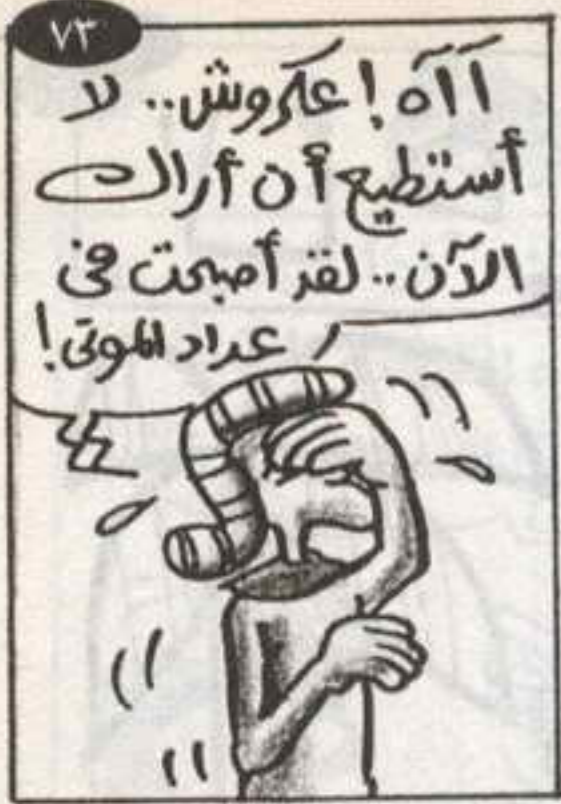 ٧٣
آآه! عكروش.. لا
أستطيع أن أراك
الآن.. لقد أصبحت فى
عداد الموتى!